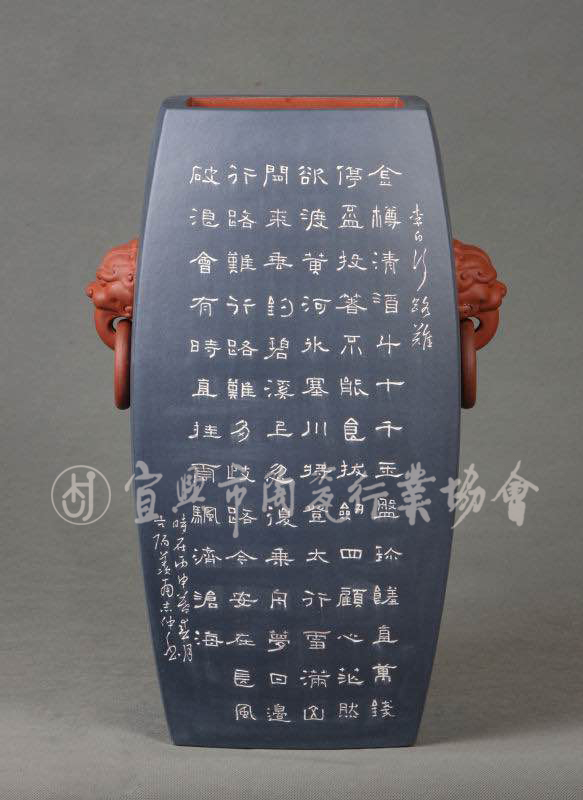 李白行路難
金樽清酒斗十千玉盤珍饈直萬錢
停盃投箸不能食拔劍四顧心茫然
欲渡黃河冰塞川將登太行雪滿山
閒來垂釣碧溪上忽復乘舟夢日邊
行路難行路難多歧路今安在長風
破浪會有時直挂雲帆濟滄海
時在丙申春月
陽羨志仲
宜興市陶瓷行業協會